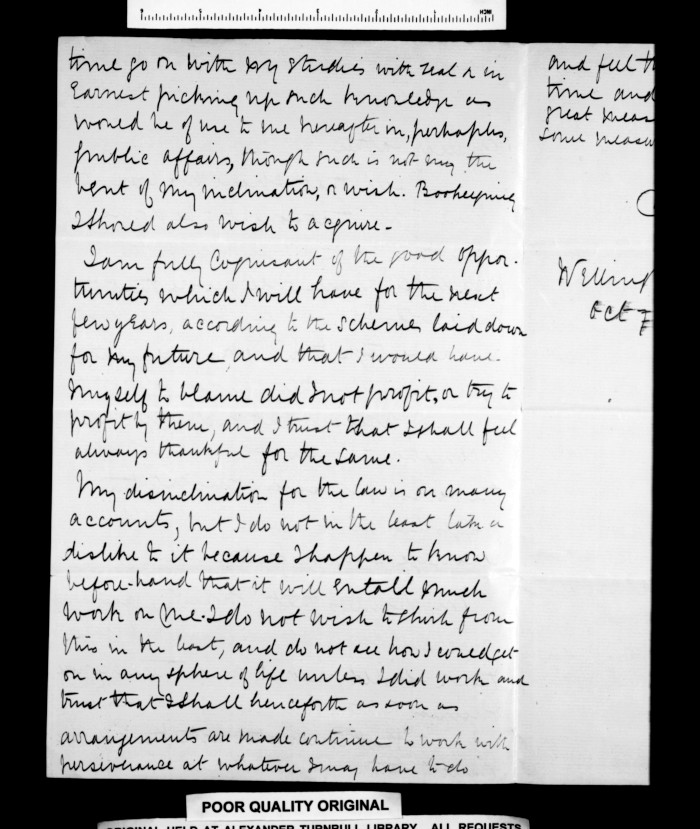 time go on with my studies with zeal & in
Earnest picking up such knowledge as
would be of use to me hereafter in, perhaps,
public affairs, though such is not my the
bent of my inclination, or wish. Bookeeping
I should also wish to acquire -
I am fully Cognisant of the good oppor-
tunities which I will have for the next
few years, according to the schemes laid down
for my future, and that I would have
myself to blame did I not profit, or try to
profit by them, and I trust that I shall feel
always thankful for the same.
My disinclination for the law is on many
accounts, but I do not in the least take a
dislike to it because I happen to know
before-hand that it will entail much
work on me. I do not wish to shirk from
this in the least, and do not see how I could get
on in any sphere of life unless I did work and
trust that I shall henceforth as soon as
arrangements are made continue to work with
perseverance at whatever I may have to do
and feel th
time and
great meas
some measu
Welling
Oct 7
POOR QUALITY ORIGINAL
ORIGINAL HELD AT ALEXANDER TURNBULL LIBRARY. ALL REQUESTS
INCH